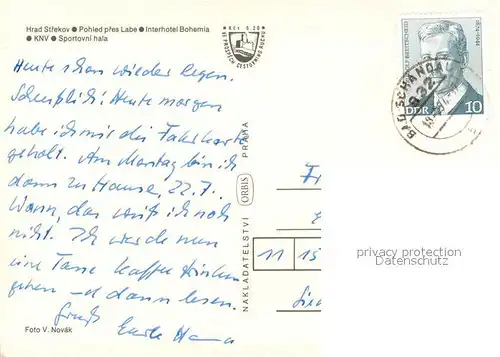 Hrad Střekov ● Pohled přes Labe ● Interhotel Bohemia
● KNV ● Sportovní hala
Heute schon wieder Regen.
Scheußlich! Heute morgen
habe ich mir die Fahrkarte
geholt. Am Montag bin ich
dann zu Hause, 22.7.
Wann, das weiß ich noch
nicht. Ich werde nun
eine Tasse Kaffee trinken
gehen und dann lesen.
Gruß Eure Mama
Foto V. Novák
Kčs 0.20
VE PROSPĚCH CESTOVNÍHO RUCHU
NAKLADATELSTVÍ ORBIS PRAHA
BREITSCHEID
1874-1944
DDR 10
BAD SCHANDAU
8320
11 15
privacy protection
Datenschutz